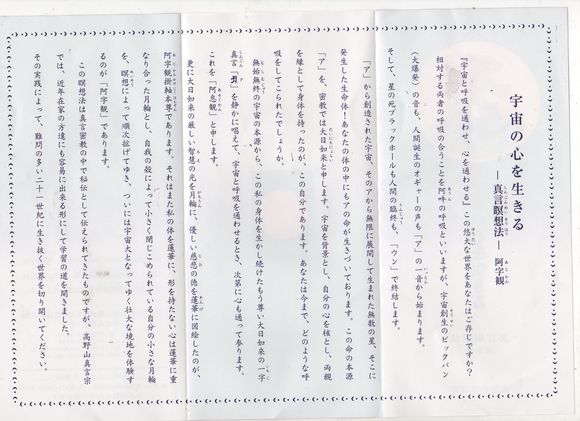 宇宙の心を生きる
―真言瞑想法― 阿字観
『宇宙と呼吸を通わせ、心を通わせる』この悠大な世界をあなたはご存じですか？
相対する両者の呼吸の合うことを阿吽の呼吸といいますが、宇宙創生のビックバン
（大爆発）の音も、人間誕生のオギャーの声も「ア」の一音から始まります。
そして、星の死ブラックホールも人間の臨終も、「ウン」で終結します。
「ア」から創造された宇宙、そのアから無限に展開して生まれた無数の星、そこに
発生した生命体！あなたの体の中にもアの命が生きづいております。この命の本源
「ア」を、密教では大日如来と申します。宇宙を背景とし、自分の心を核とし、両親
を縁として身体を持ったのが、この自分であります。あなたは今まで、どのような呼
吸をしてこられたでしょうか。
無始無終の宇宙の本源から、この私の身体を生かし続けたもう尊い大日如来の一字
真言「𑖀」を静かに唱えて、宇宙と呼吸を通わせるとき、次第に心も通って参ります。
これを「阿息観」と申します。
更に大日如来の厳しい智慧の光を月輪に、優しい慈悲の徳を蓮華に図絵したのが、
阿字観掛軸本尊であります。それはまた私の体を蓮華に、形を持たない心は蓮華に重
なり合った月輪とし、自我の殻によって小さく閉じこめられている自分の小さな月輪
を、瞑想によって順次拡げてゆき、ついには宇宙大となってゆく壮大な境地を体験す
るのが「阿字観」であります。
この瞑想法は真言密教の中で秘伝として伝えられてきたものですが、高野山真言宗
では、近年在家の方達にも容易に出来る形にして学習の道を開きました。
その実践によって、難問の多い二十一世紀に生き抜く世界を切り開いてください。